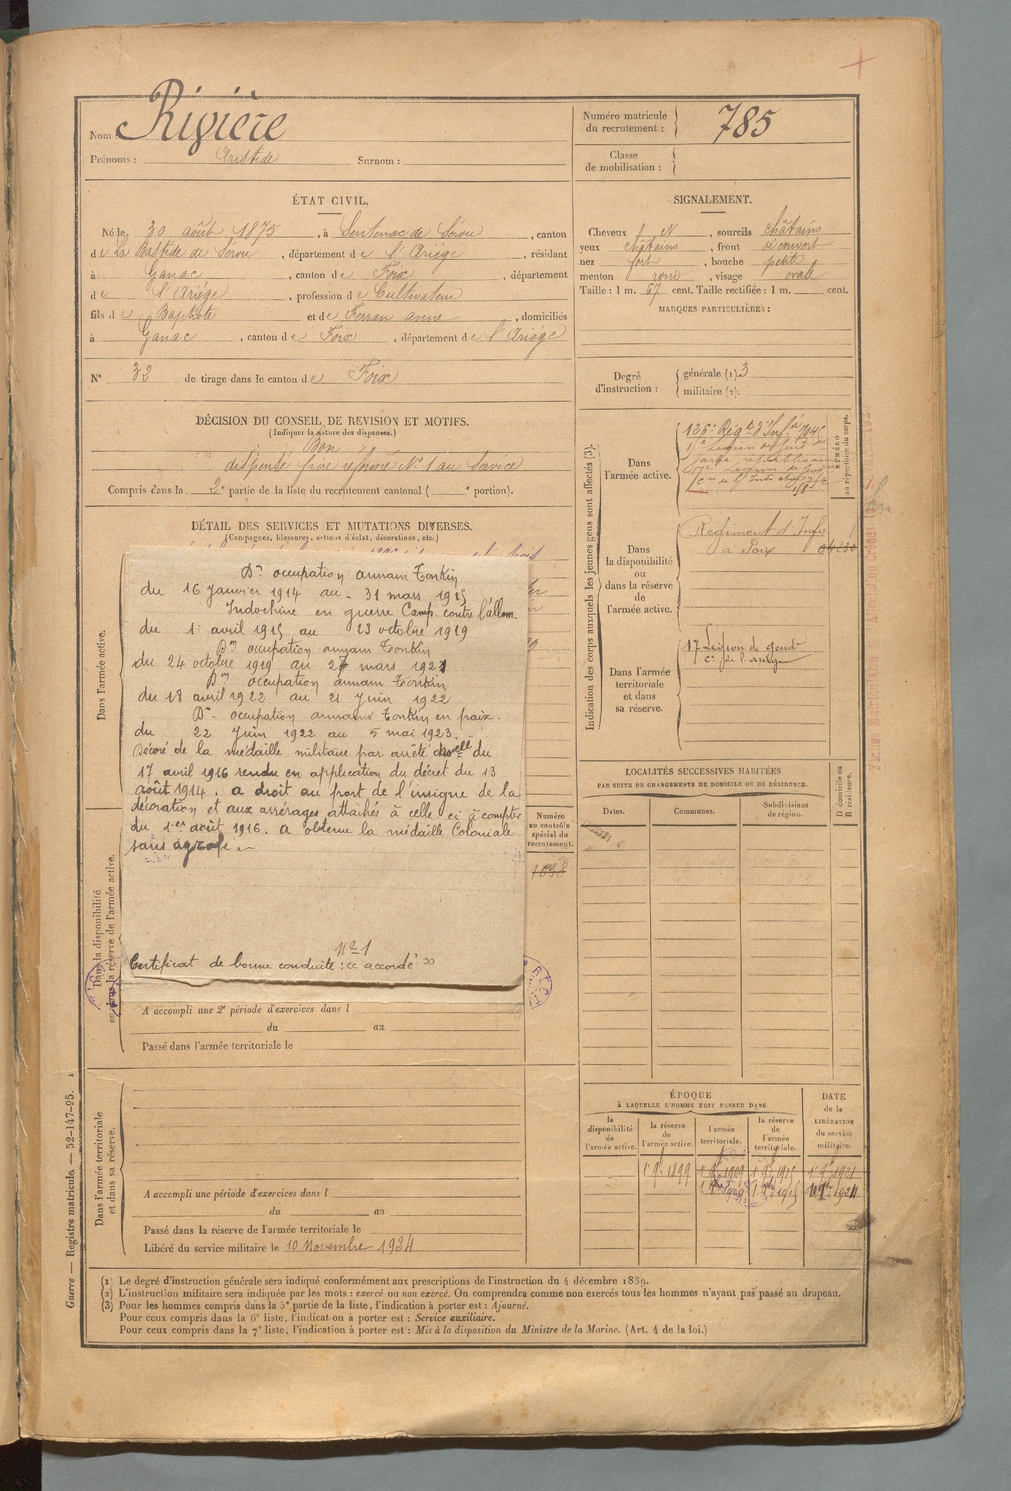 Nom : Rivière
Prénoms : Aristide Surnom :
Numéro matricule
du recrutement : 785
Classe
de mobilisation :
ÉTAT CIVIL.
Né le 30 août 1875, à Sentenac de Sérou, canton
de La Bastide de Sérou, département de l'Ariège, résidant
à Ganac, canton de Foix, département
de l'Ariège, profession de Cultivateur
fils de Baptiste et de Ferran anne, domiciliés
à Ganac, canton de Foix, département de l'Ariège
N° 32 de tirage dans le canton de Foix
SIGNALEMENT.
Cheveux N, sourcils châtains
yeux châtains, front découvert
nez fort, bouche petite
menton rond, visage ovale
Taille : 1 m. 67 cent. Taille rectifiée : 1 m. cent.
MARQUES PARTICULIÈRES :
Degré
d'instruction :
générale (1) 3
militaire (2).
DÉCISION DU CONSEIL DE REVISION ET MOTIFS.
(Indiquer la nature des dispenses.)
Bon
dispensé frère réformé N° 1 au Service
Compris dans la 2e partie de la liste du recrutement cantonal ( e portion).
DÉTAIL DES SERVICES ET MUTATIONS DIVERSES.
(Campagnes, blessures, actions d'éclat, décorations, etc.)
Dans l'armée active.
Dn occupation annam Tonkin
du 16 Janvier 1914 au 31 mars 1915
Indochine en guerre Camp. contre l'allem.
du 1er avril 1915 au 23 octobre 1919
Dn occupation annam Tonkin
du 24 octobre 1919 au 27 mars 1921
Dn occupation annam Tonkin
du 18 avril 1922 au 21 Juin 1922
Dn occupation annam Tonkin en paix.
du 22 Juin 1922 au 5 mai 1923.
Décoré de la médaille militaire par arrêté du
17 avril 1916 rendu en application du décret du 13
août 1914. a droit au port de l'insigne de la
décoration et aux arrérages attachés à celle ci à compter
du 1er août 1916. a obtenu la médaille Coloniale
sans agrafe.
N° 1
Certificat de bonne conduite : "accordé"
Dans la disponibilité
ou dans la réserve de l'armée active.
A accompli une 2e période d'exercices dans l
du au
Passé dans l'armée territoriale le
Numéro
au contrôle
spécial du
recrutement.
1038
Indication des corps auxquels les jeunes gens sont affectés (3).
NUMÉRO
au répertoire du corps.
Dans
l'armée active.
126e Régt d'Infie
Dans
la disponibilité
ou
dans la réserve
de
l'armée active.
Régiment d'Infie
à Foix
Dans l'armée
territoriale
et dans
sa réserve.
17e Légion de gend
Cie de l'ariège
LOCALITÉS SUCCESSIVES HABITÉES
PAR SUITE DE CHANGEMENTS DE DOMICILE OU DE RÉSIDENCE.
Dates.
Communes.
Subdivisions
de région.
D domicile ou
R résidence.
Dans l'armée territoriale
et dans sa réserve.
A accompli une période d'exercices dans l
du au
Passé dans la réserve de l'armée territoriale le
Libéré du service militaire le 10 Novembre 1924
ÉPOQUE
À LAQUELLE L'HOMME DOIT PASSER DANS
la
disponibilité
de
l'armée active.
la réserve
de
l'armée active.
l'armée
territoriale.
la réserve
de
l'armée
territoriale.
DATE
de la
LIBÉRATION
du service
militaire.
1 9bre 1899
(1) Le degré d'instruction générale sera indiqué conformément aux prescriptions de l'instruction du 4 décembre 1889.
(2) L'instruction militaire sera indiquée par les mots : exercé ou non exercé. On comprendra comme non exercés tous les hommes n'ayant pas passé au drapeau.
(3) Pour les hommes compris dans la 5e partie de la liste, l'indication à porter est : Ajourné.
Pour ceux compris dans la 6e liste, l'indication à porter est : Service auxiliaire.
Pour ceux compris dans la 7e liste, l'indication à porter est : Mis à la disposition du Ministre de la Marine. (Art. 4 de la loi.)
Guerre — Registre matricule. — 52-147-95.